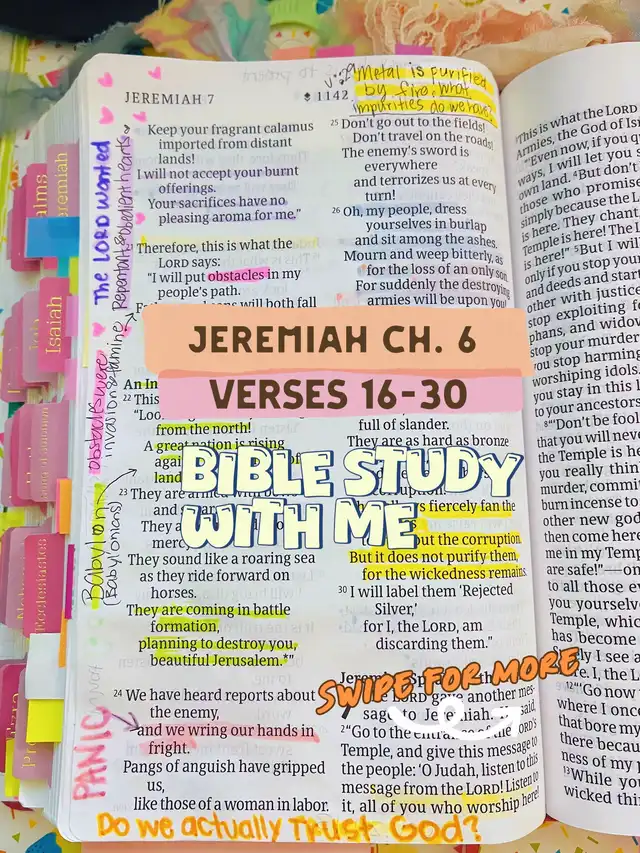 JEREMIAH 7
1142
Metal is purified
by fire, what
impurities do we have?
Keep your fragrant calamus
imported from distant
lands!
I will not accept your burnt
offerings.
Your sacrifices have no
pleasing aroma for me."
Therefore, this is what the
LORD says:
"I will put obstacles in my
people's path.
will both fall
An In
22 This
"Loo
from the north!
A great nation is rising
agai
land
23 They are armed
and
They a
mercy
They sound like a roaring sea
as they ride forward on
horses.
They are coming in battle
formation,
planning to destroy you,
beautiful Jerusalem.*"
24 We have heard reports about
the enemy,
and we wring our hands in
fright.
Pangs of anguish have gripped
us,
like those of a woman in labor.
25 Don't go out to the fields!
Don't travel on the roads!
The enemy's sword is
everywhere
and terrorizes us at every
turn!
26 Oh, my people, dress
yourselves in burlap
and sit among the ashes.
Mourn and weep bitterly, as
for the loss of an only son.
For suddenly the destroying
armies will be upon you!
full of slander.
They are as hard as bronze
corruption.
fiercely fan the
out the corruption.
But it does not purify them,
for the wickedness remains.
30 I will label them 'Rejected
Silver,'
for I, the LORD, am
discarding them."
LORD gave another mes-
sage to Jeremiah.
said,
2 "Go to the entrance of the LORD'S
Temple, and give this message to
the people: 'O Judah, listen to this
message from the LORD! Listen to
it, all of you who worship here!
This is what the LORD
Armies, the God of Is
"'Even now, if you q
ways, I will let you s
own land. 4 But don't
those who promise
simply because the L
is here. They chant
Temple is here! The L
is here!" 5 But I will
only if you stop your
and deeds and start
other with justice
stop exploiting f
phans, and widow
stop your murder
you stop harming
worshiping idols.
you stay in this l
to your ancestors
8 "'Don't be fool
that you will neve
the Temple is he
you really thin
murder, commit
burn incense to
other new god
then come here
me in my Temp
are safe!"—on
to all those ev
you yourselv
Temple, whic
has become
ly I see a
12 "'Go now
where I once
that bore my
there becau
ness of my p
13 While you
wicked thin
The LORD wanted
Repentant & obedient hearts
obstacles were
invaltions & famine
Babylon
(Babylonians)
PANIC
Do we actually Trust God?
Psalms
Jeremiah
Isaiah
Ecclesiastes
JEREMIAH CH. 6
VERSES 16-30
BIBLE STUDY
WITH ME
SWIPE FOR MORE